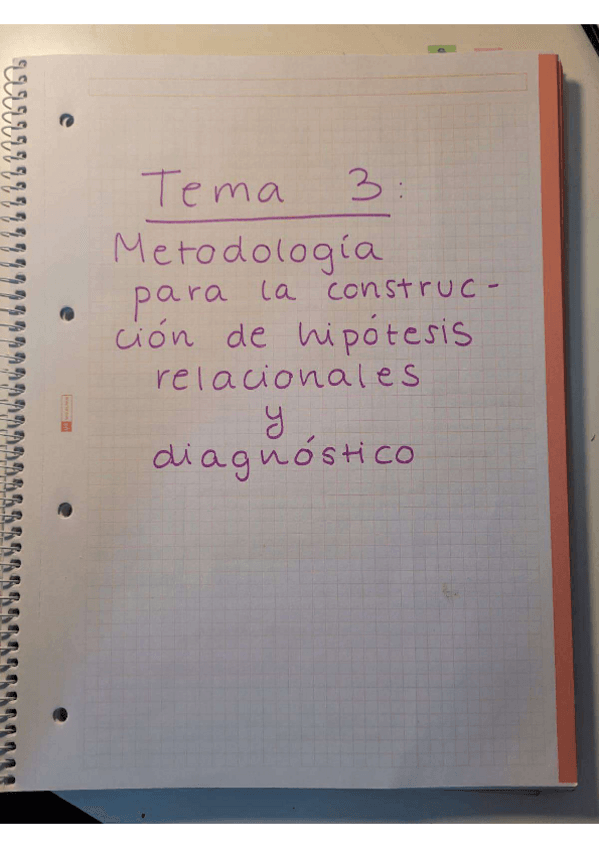 Tema 3:
Metodología
para la construc-
ción de hipótesis
relacionales
y
diagnóstico